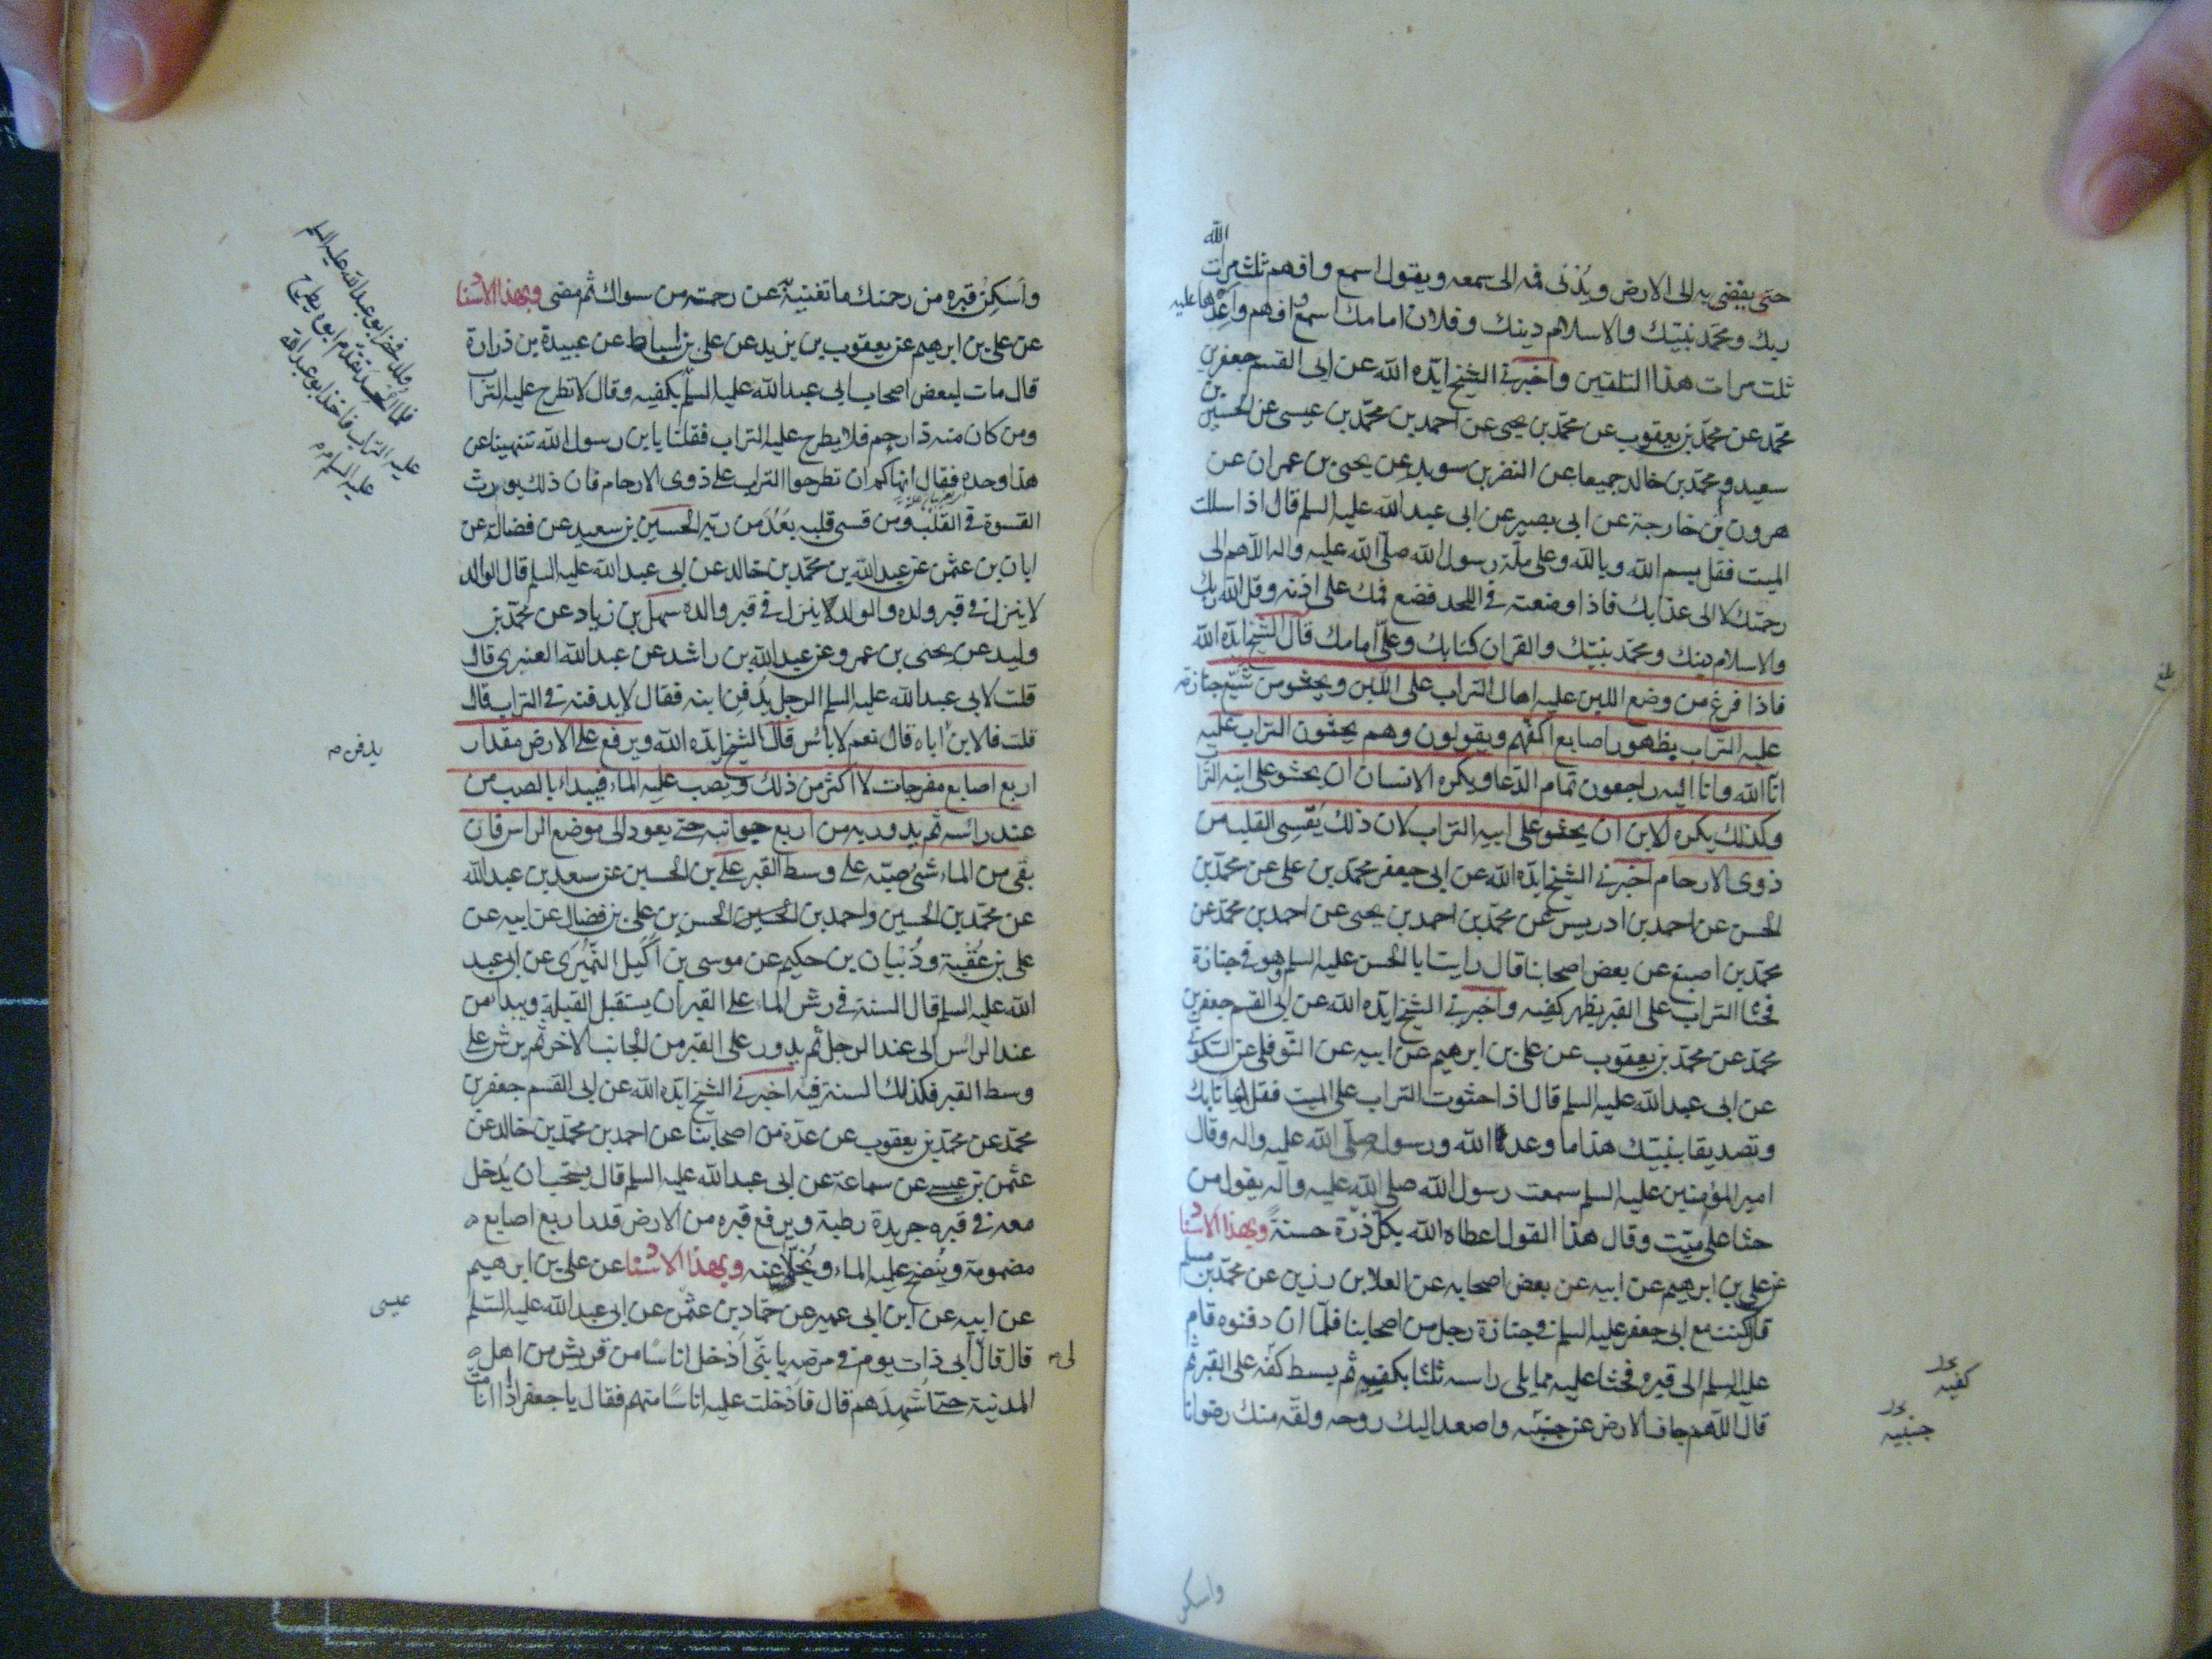 الله
حتى يفضى به الى الارض ويدنى فمه الى سمعه ويقول اسمع وافهم ثلث مرات
ربك ومحمد نبيك والاسلام دينك وفلان امامك اسمع وافهم واعدها عليه
ثلث مرات هذا التلقين واخبرنى الشيخ ايده الله عن ابى القسم جعفر بن
محمد عن محمد بن يعقوب عن محمد بن يحيى عن احمد بن محمد بن عيسى عن الحسين بن
سعيد ومحمد بن خالد جميعا عن النضر بن سويد عن يحيى بن عمران عن
هرون بن خارجة عن ابى بصير عن ابى عبد الله عليه السلم قال اذا سللت
الميت فقل بسم الله وبالله وعلى ملة رسول الله صلى الله عليه واله اللهم الى
رحمتك لا الى عذابك فاذا وضعته فى اللحد فضع فمك على اذنه وقل الله ربك
والاسلام دينك ومحمد نبيك والقران كتابك وعلى امامك قال الشيخ ايده الله
فاذا فرغ من وضع اللبن عليه اهال التراب على اللبن ويحثو من شيع جنازته
عليه التراب بظهور اصابع اكفهم ويقولون وهم يحثون التراب عليه
انا لله وانا اليه راجعون تمام الدعا ويكره الانسان ان يحثو على ابنه الترا
وكذلك يكره الابن ان يحثو على ابيه التراب لان ذلك يقسى القلب من
ذوى الارحام اخبرنى الشيخ ايده الله عن ابى جعفر محمد بن على عن محمد بن
الحسن عن احمد بن ادريس عن محمد بن احمد بن يحيى عن احمد بن محمد عن
محمد بن اصبغ عن بعض اصحابنا قال رايت ابا الحسن عليه السلم وهو فى جنازة
فحثا التراب على القبر بظهر كفيه واخبرنى الشيخ ايده الله عن ابى القسم جعفر بن
محمد عن محمد بن يعقوب عن على بن ابرهيم عن ابيه عن النوفلى عن السكونى
عن ابى عبد الله عليه السلم قال اذا حثوت التراب على الميت فقل ايمانا بك
وتصديقا بنبيك هذا ما وعدنا الله ورسوله صلى الله عليه واله وقال
امير المؤمنين عليه السلم سمعت رسول الله صلى الله عليه وآله يقول من
حثا على ميت وقال هذا القول اعطاه الله بكل ذرة حسنة وبهذا الاسنا
عن على بن ابرهيم عن ابيه عن بعض اصحابه عن العلا بن رزين عن محمد بن مسلم
قال كنت مع ابى جعفر عليه السلم فى جنازة رجل من اصحابنا فلما ان دفنوه قام
عليه السلم الى قبره فحثا عليه مما يلى راسه ثلثا بكفيه ثم بسط كفه على القبر ثم
قال اللهم جاف الارض عن جنبيه واصعد اليك روحه ولقه منك رضوانا
بلغ
كفيه
جنبيه
واسكن
واسكن قبره من رحمتك ما تغنيه عن رحمة من سواك ثم مضى وبهذا الاسنا
عن على بن ابرهيم عن يعقوب بن يزيد عن على بن اسباط عن عبيدة بن زرارة
قال مات لبعض اصحاب ابى عبد الله عليه السلم بكفيه وقال لا تطرح عليه الترا
ومن كان منه ذا رحم فلا يطرح عليه التراب فقلنا يا بن رسول الله تنهينا عن
هذا وحده فقال انهاكم ان تطرحوا التراب على ذوى الارحام فان ذلك يورث
القسوة فى القلب ومن قسى قلبه بعد من ربه الحسين بن سعيد عن فضالة عن
ابان بن عثمن عن عبد الله بن محمد بن خالد عن ابى عبد الله عليه السلم قال الوالد
لا ينزل فى قبر ولده والولد لا ينزل فى قبر والده سهل بن زياد عن محمد بن
وليد عن يحيى بن عمرو عن عبد الله بن راشد عن عبد الله العنبرى قال
قلت لابى عبد الله عليه السلم الرجل يدفن ابنه فقال لا يدفنه فى التراب قال
قلت فالابن اباه قال نعم لا بأس قال الشيخ ايده الله ويرفع على الارض مقدار
اربع اصابع مفرجات لا اكثر من ذلك ويصب عليه الماء فيبداء بالصب من
عند رائسه ثم يدور به من اربع جوانبه حتى يعود الى موضع الراس فان
بقى من الماء شئ صبه على وسط القبر على بن الحسين عن سعد بن عبد الله
عن محمد بن الحسين واحمد بن الحسين الحسن بن على بن فضال عن ابيه عن
على بن عقبة وذبيان بن حكيم عن موسى بن اكيل النميرى عن ابى عبد
الله عليه السلم قال السنة فى رش الماء على القبر ان يستقبل القبلة ويبدا من
عند الرائس الى عند الرجل ثم يدور على القبر من الجانب الاخر ثم يرش على
وسط القبر فكذلك السنة فيه اخبرنى الشيخ ايده الله عن ابى القسم جعفر بن
محمد عن محمد بن يعقوب عن عدة من اصحابنا عن احمد بن محمد بن خالد عن
عثمن بن عيسى عن سماعة عن ابى عبد الله عليه السلم قال يستحب ان يدخل
معه فى قبره جريدة رطبة ويرفع قبره من الارض قدر اربع اصابع
مضمومة وينضح عليه الماء ويخلا عنه وبهذا الاسنا عن على بن ابرهيم
عن ابيه عن ابن ابى عمير عن حماد بن عثمن عن ابى عبد الله عليه السلم
قال قال ابى ذات يوم فى مرضه يا بنى ادخل اناسا من قريش من اهل
المدينة حتى اشهدهم قال فادخلت عليه اناسا منهم فقال يا جعفر اذا انا مت
ولد فحضر ابو عبد الله عليه السلم
فلما الحد تقدم ابوه يطرح
عليه التراب فاخذ ابو عبد الله
عليه السلم
يدفن
عيسى
لى